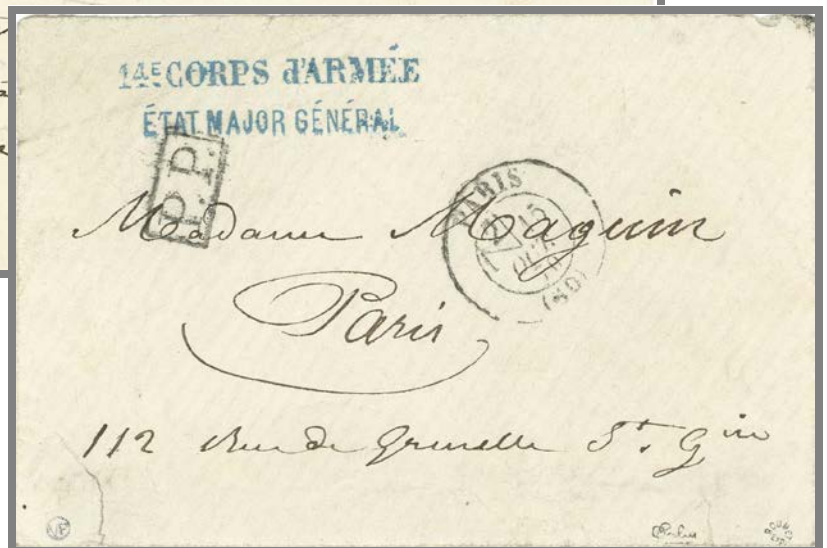 14E CORPS d'ARMÉE
ÉTAT MAJOR GÉNÉRAL
P.P.
PARIS
15
OCT.
70
(60)
Madame Maguin
Paris
112 Rue de Grenelle St. Gin